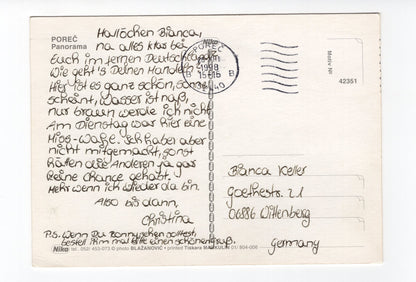 POREČ
Panorama
Hallöchen Bianca,
na alles klar bei
Euch im fernen Deutschland?
Wie geht's Deinen Mandeln?
Hier ist es ganz schön, Sonne
scheint, Wasser ist naß,
nur braun werde ich nicht
Am Dienstag war hier eine
Miss-Wahl. Ich habe aber
nicht mitgemacht, sonst
hätten die Anderen ja gar
keine Chance gehabt.
Mehr wenn ich wieder da bin.
Also bis dann,
Christina
P.S. Wenn Du Ronny sehen solltest,
bestell ihm mal bitte einen schönen Gruß.
Niko tel. 052/ 453-073 © photo BLAŽANOVIĆ • printed Tiskara 01/ 804-006
POREČ
1998
B B
Motiv Nr.
42351
Bianca Keller
Goethestr. 21
06886 Wittenberg
Germany